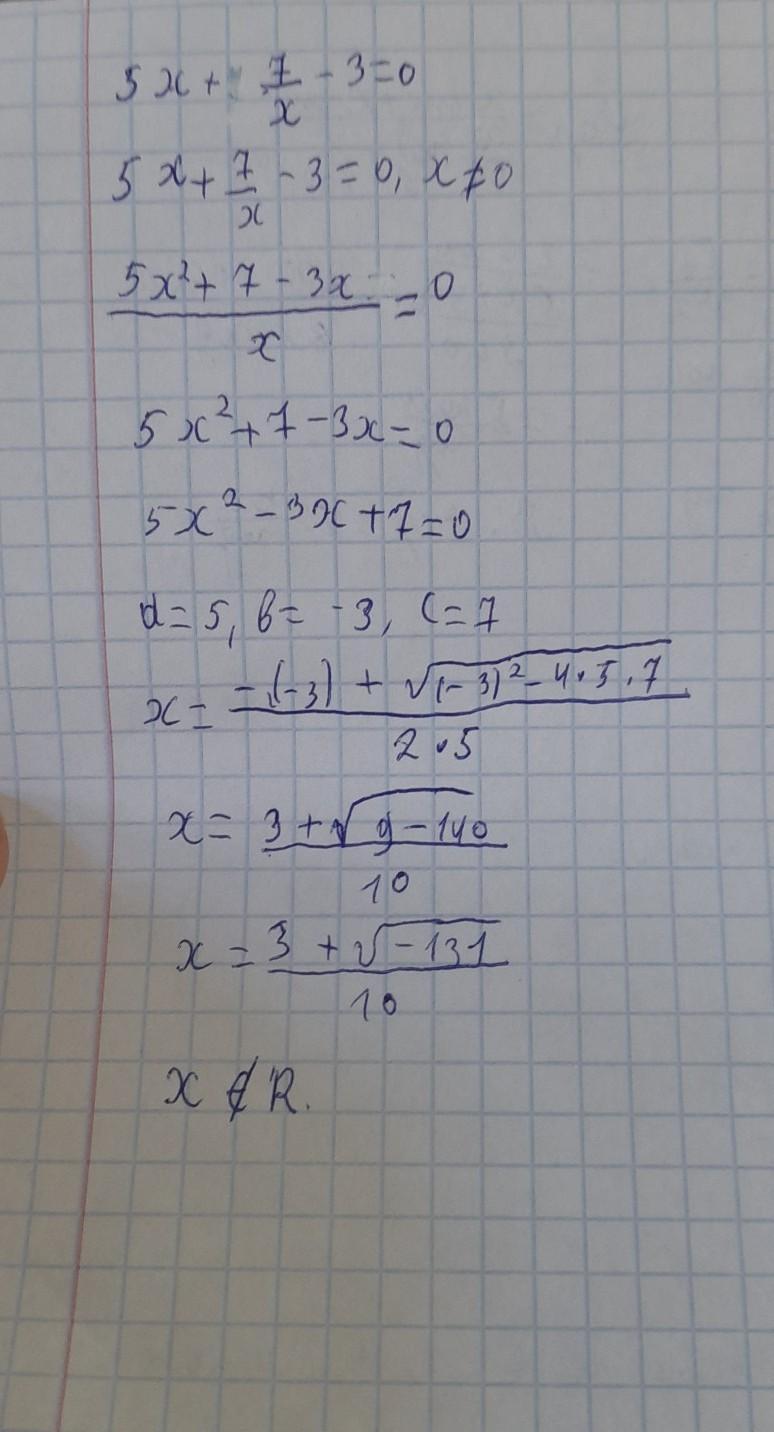 5x + 7/x - 3 = 0
5x + 7/x - 3 = 0, x ≠ 0
(5x² + 7 - 3x)/x = 0
5x² + 7 - 3x = 0
5x² - 3x + 7 = 0
a = 5, b = -3, c = 7
x = (-(-3) + √((-3)² - 4·5·7))/(2·5)
x = (3 + √(9 - 140))/10
x = (3 + √(-131))/10
x ∉ R.